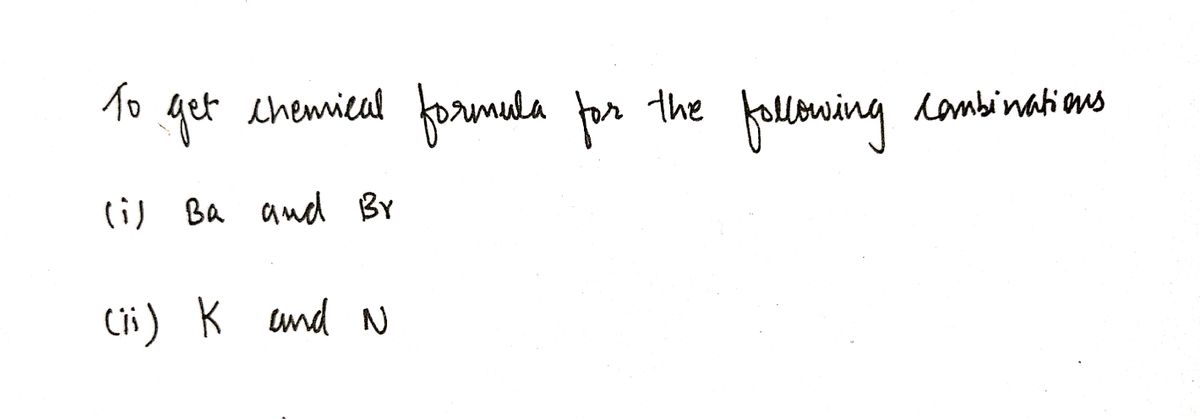 To get chemical formula for the following combinations
(i) Ba and Br
(ii) K and N